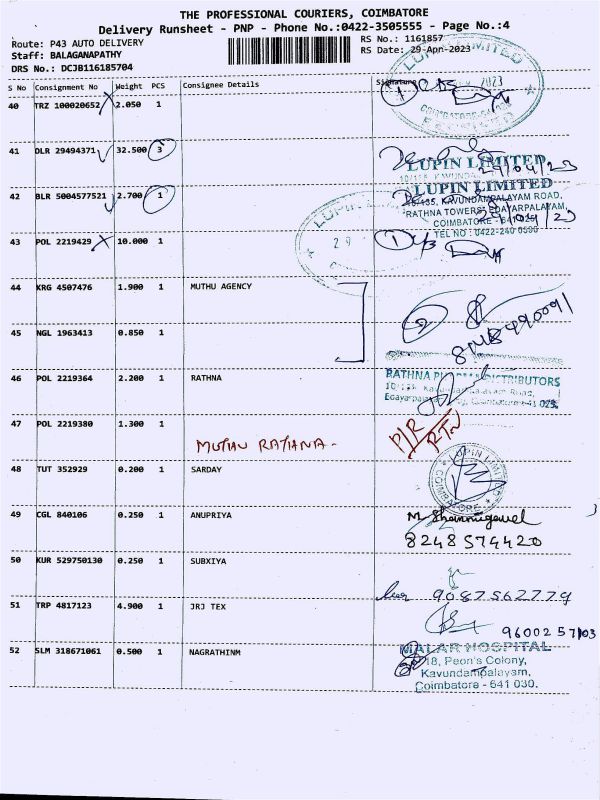 THE PROFESSIONAL COURIERS, COIMBATORE
Delivery Runsheet - PNP - Phone No.:0422-3505555 - Page No.:4
Route: P43 AUTO DELIVERY
RS No.: 1161857
Staff: BALAGANAPATHY
RS Date: 29-Apr-2023
DRS No.: DCJB116185704
S No Consignment No Weight PCS Consignee Details Signature
40 TRZ 100020652 2.050 1
COIMBATORE-641
41 DLR 29494371 32.500 3
LUPIN LIMITED
29/04/23
42 BLR 5004577521 2.700 1
LUPIN LIMITED
10/135, KAVUNDAMPALAYAM ROAD,
RATHNA TOWERS, EDAYARPALAYAM,
COIMBATORE - 641 025
TEL NO : 0422-240 0590
43 POL 2219429 10.000 1
44 KRG 4507476 1.900 1 MUTHU AGENCY
45 NGL 1963413 0.850 1
46 POL 2219364 2.200 1 RATHNA
RATHNA PHARMA DISTRIBUTORS
47 POL 2219380 1.300 1
MUTHU RATHNA -
P/R
RTN
48 TUT 352929 0.200 1 SARDAY
LUPIN LIMITED
COIMBATORE
49 CGL 840106 0.250 1 ANUPRIYA
M. Shanmugavel
8248574420
50 KUR 529750130 0.250 1 SUBXIYA
9087562779
51 TRP 4817123 4.900 1 JRJ TEX
9600257103
52 SLM 318671061 0.500 1 NAGRATHINM
MALAR HOSPITAL
18, Peon's Colony,
Kavundampalayam,
Coimbatore - 641 030.